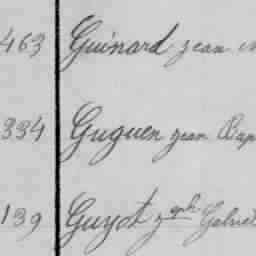 463 Guinard Jean
334 Guguen Jean Bap
139 Guyot Jph Gabriel